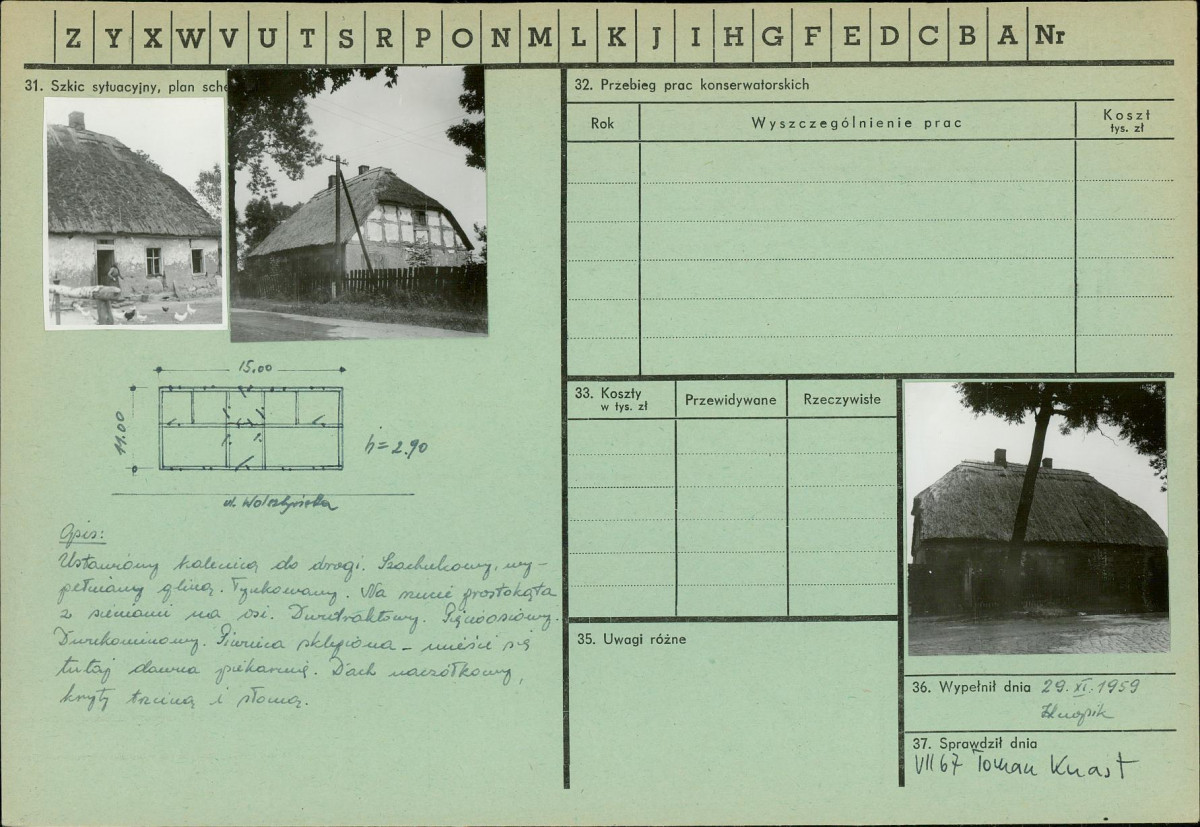 Z Y X W V U T S R P O N M L K J I H G F E D C B A Nr
31. Szkic sytuacyjny, plan sche
15.00
11.00
h = 2.90
ul. Wolsztyńska
Opis:
Ustawiony kalenicą do drogi. Szachulcowy, wy-
pełniany gliną. Tynkowany. Na rzucie prostokąta
z sieniami na osi. Dwutraktowy. Pięcioosiowy.
Dwukominowy. Piwnica sklepiona – mieści się
tutaj dawna piekarnię. Dach naczółkowy,
kryty trzciną i słomą.
32. Przebieg prac konserwatorskich
Rok
Wyszczególnienie prac
Koszt
tys. zł
33. Koszty
w tys. zł
Przewidywane
Rzeczywiste
35. Uwagi różne
36. Wypełnił dnia 29.XI.1959
37. Sprawdził dnia
VII 67 Toman Knast